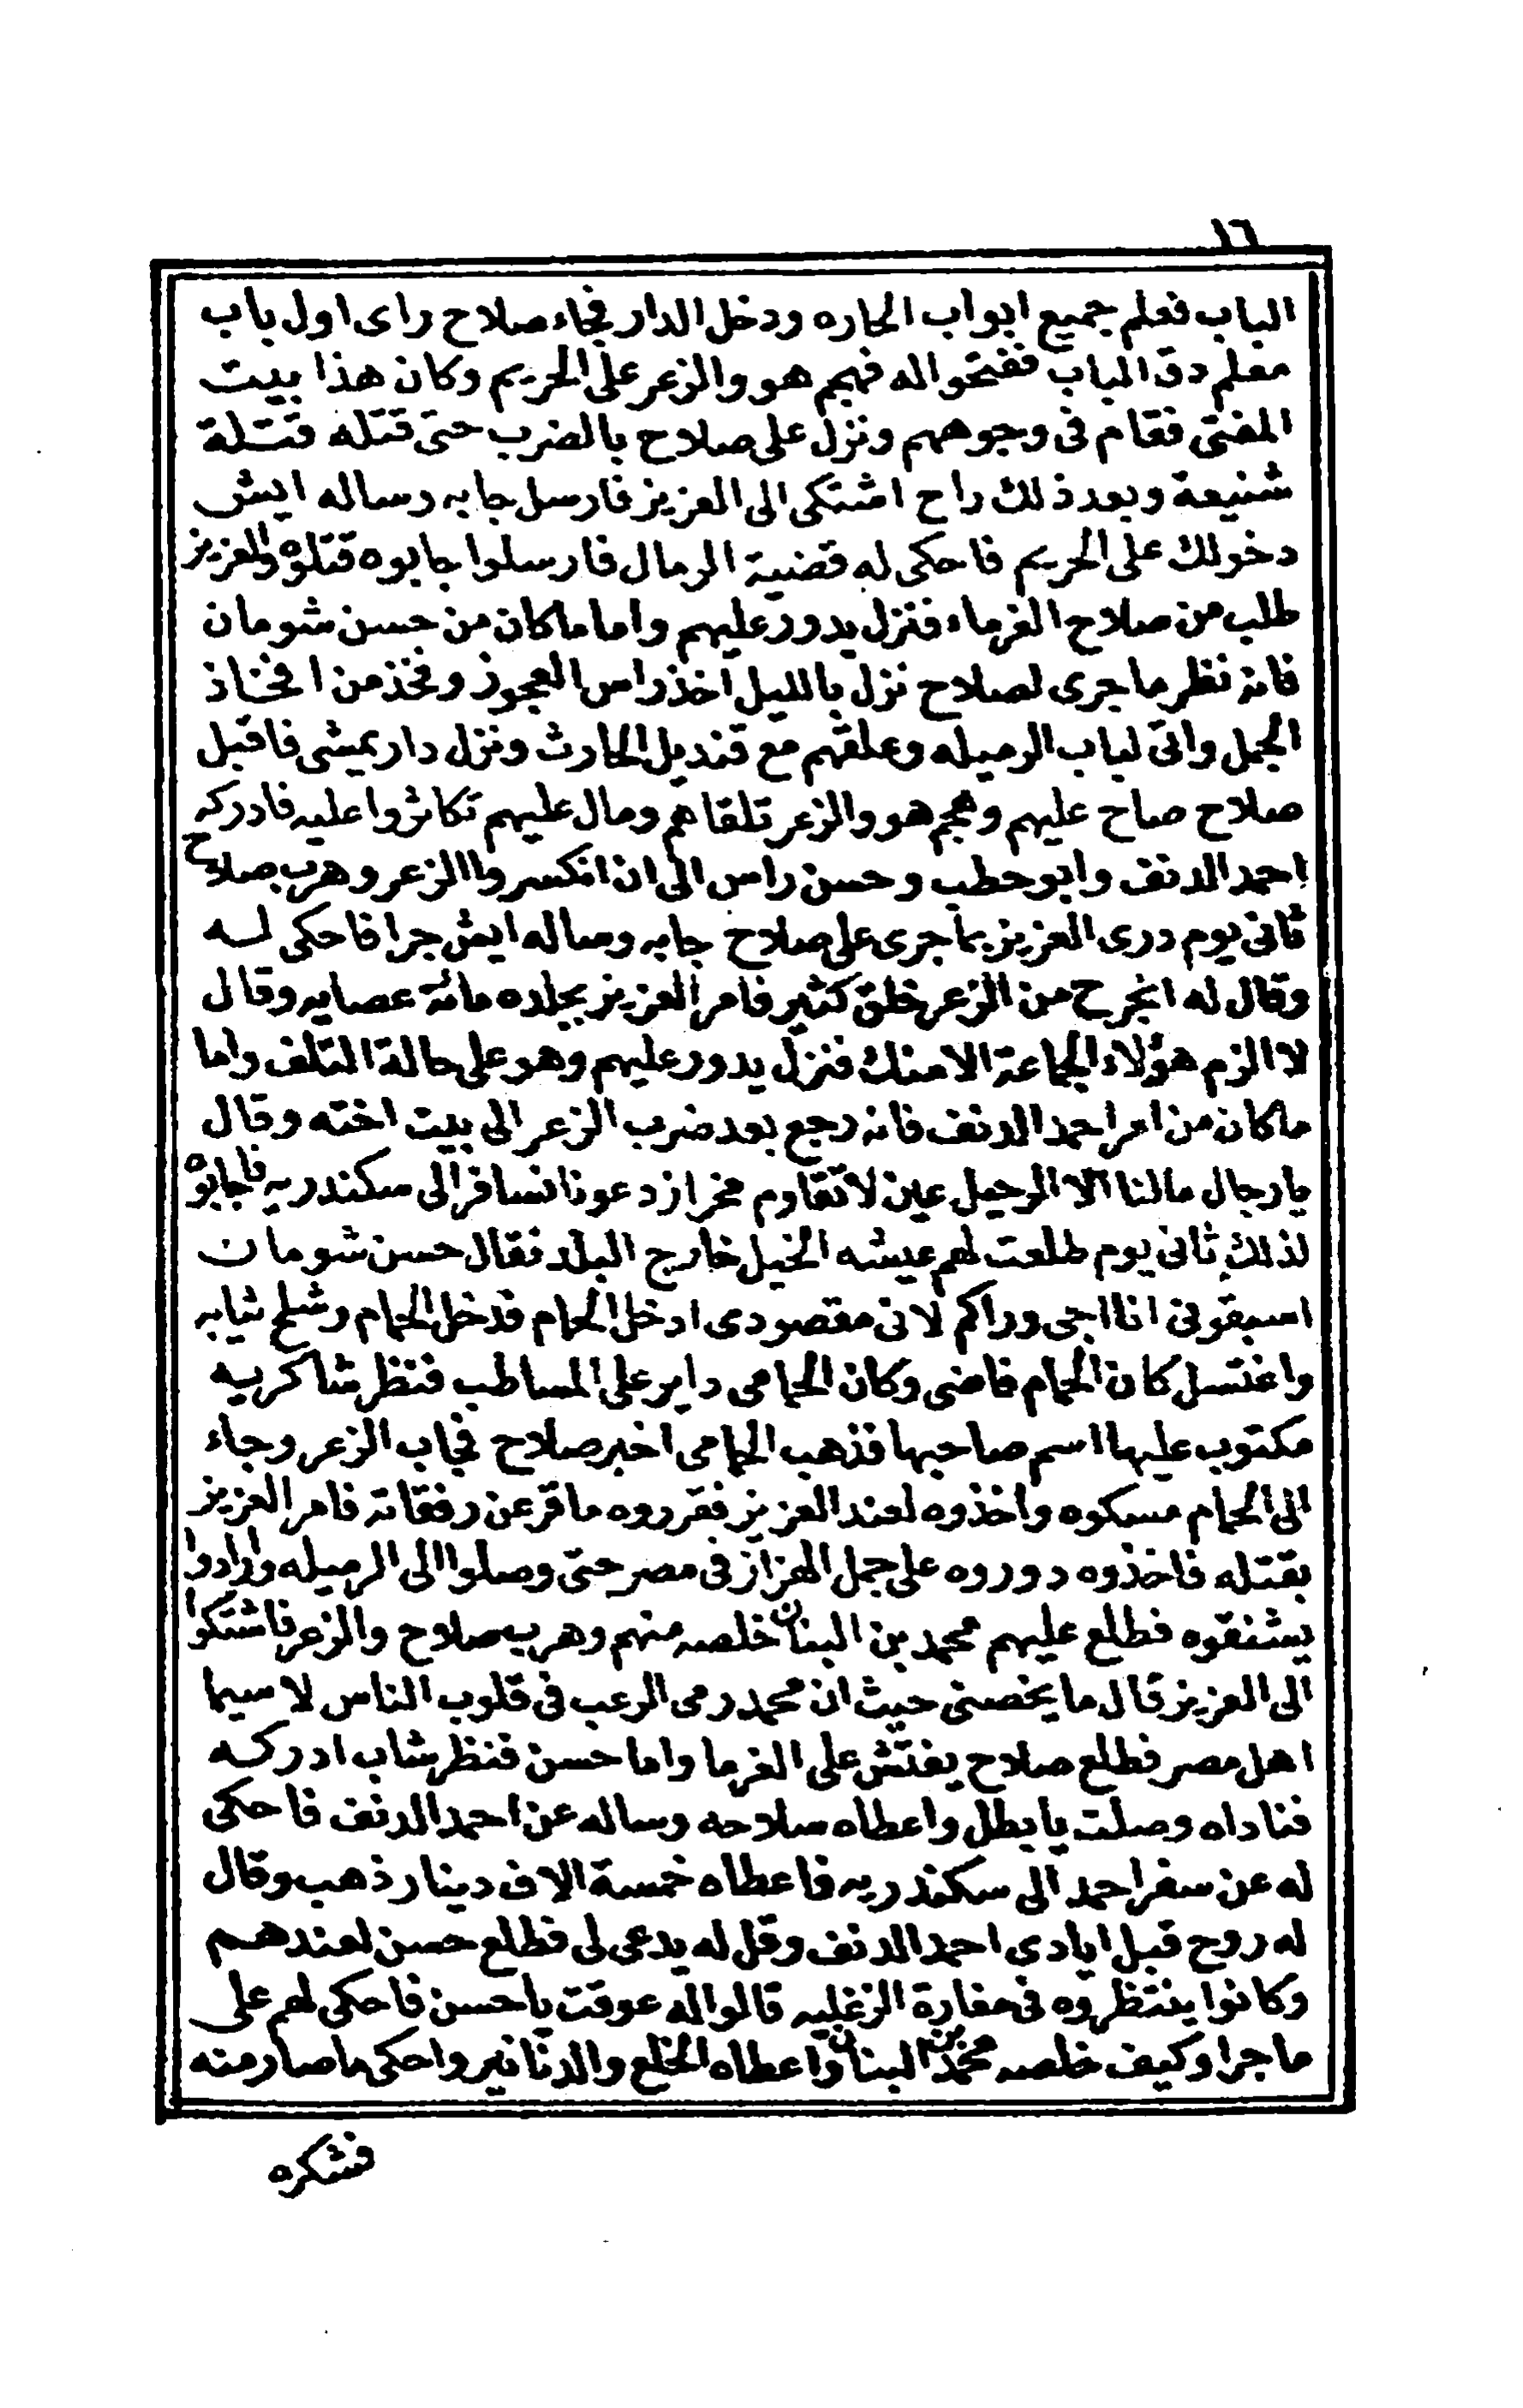 ١٦
الباب فعلم جميع ابواب الحاره ودخل الدار فجاء صلاح راى اول باب
معلم دق الباب ففتحوا له فهجم هو والزعر على الحريم وكان هذا بيت
المفتى فقام فى وجوههم ونزل على صلاح بالضرب حتى قتله قتلة
شنيعة وبعد ذلك راح اشتكى الى العزيز فارسل جابه وساله ايش
دخولك على الحريم فاحكى له قضية الرمال فارسلوا جابوه قتلوه والعزيز
طلب من صلاح الغرماء فنزل يدور عليهم واما ما كان من حسن شومان
فانه نظر ما جرى لصلاح نزل بالليل اخذ راس العجوز وفخذ من افخاذ
الجمل واتى لباب الرميله وعلقهم مع قنديل الحارث ونزل داريمشى فاقبل
صلاح صاح عليهم وهجم هو والزعر تلقاهم ومال عليهم تكاثروا عليه فادركه
احمد الدنف وابو حطب وحسن راس الى ان انكسروا الزعر وهرب صلاح
ثانى يوم درى العزيز بما جرى على صلاح جابه وساله ايش جرا فاحكى له
وقال له انجرح من الزعر خلق كثير فامر العزيز بجلده مائة عصايه وقال
لا الزم هؤلاء الجماعة الا منك فنزل يدور عليهم وهو على حالة التلف واما
ما كان من امر احمد الدنف فانه رجع بعد ضرب الزعر الى بيت اخته وقال
يا رجال مالنا الا الرحيل عين لا تقاوم مخراز دعونا نسافر الى سكندريه فاجابوه
لذلك ثانى يوم طلعت لهم عيشه الخيل خارج البلد فقال حسن شومان
اسبقونى انا اجى وراكم لانى مقصودى ادخل الحمام فدخل الحمام وشلح ثيابه
واغتسل كان الحمام فاضى وكان الحمامى داير على المساطب فنظر شاكريه
مكتوب عليها اسم صاحبها فذهب الحمامى اخبر صلاح فجاب الزعر وجاء
الى الحمام مسكوه واخذوه لعند العزيز فقرروه ما قر عن رفقاته فامر العزيز
بقتله فاخذوه دوروه على جمل الهزاز فى مصر حتى وصلوا الى الرميله وارادوا
يشنقوه فطلع عليهم محمد بن البنان خلصه منهم وهرب صلاح والزعر فاشتكوا
الى العزيز قال ما يخصنى حيث ان محمد رمى الرعب فى قلوب الناس لا سيما
اهل مصر فطلع صلاح يفتش على الغرما واما حسن فنظر شاب ادركه
فناداه وصلت يا بطل واعطاه سلاحه وساله عن احمد الدنف فاحكى
له عن سفر احمد الى سكندريه فاعطاه خمسة الاف دينار ذهب وقال
له روح قبل ايادى احمد الدنف وقل له يدعى لى فطلع حسن لعندهم
وكانوا ينتظروه فى مغارة الزغليه قالوا له عوقت يا حسن فاحكى لهم على
ما جرا وكيف خلصه محمد بن البنان واعطاه الخلع والدنانير واحكى ما صار منه
فشكره